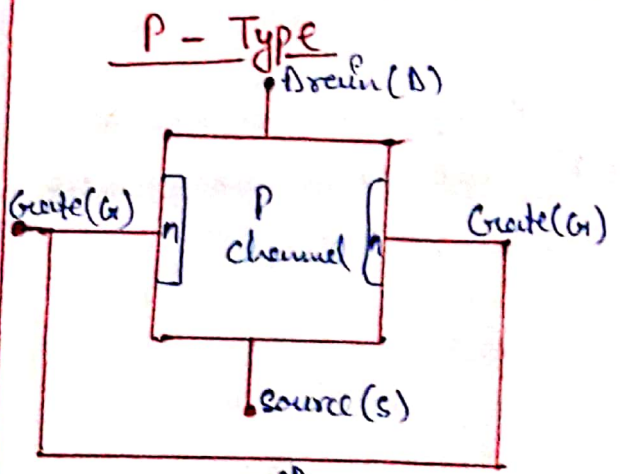 P - Type
Drain(D)
Gate(G)
P
n
channel
n
Gate(G)
Source(S)